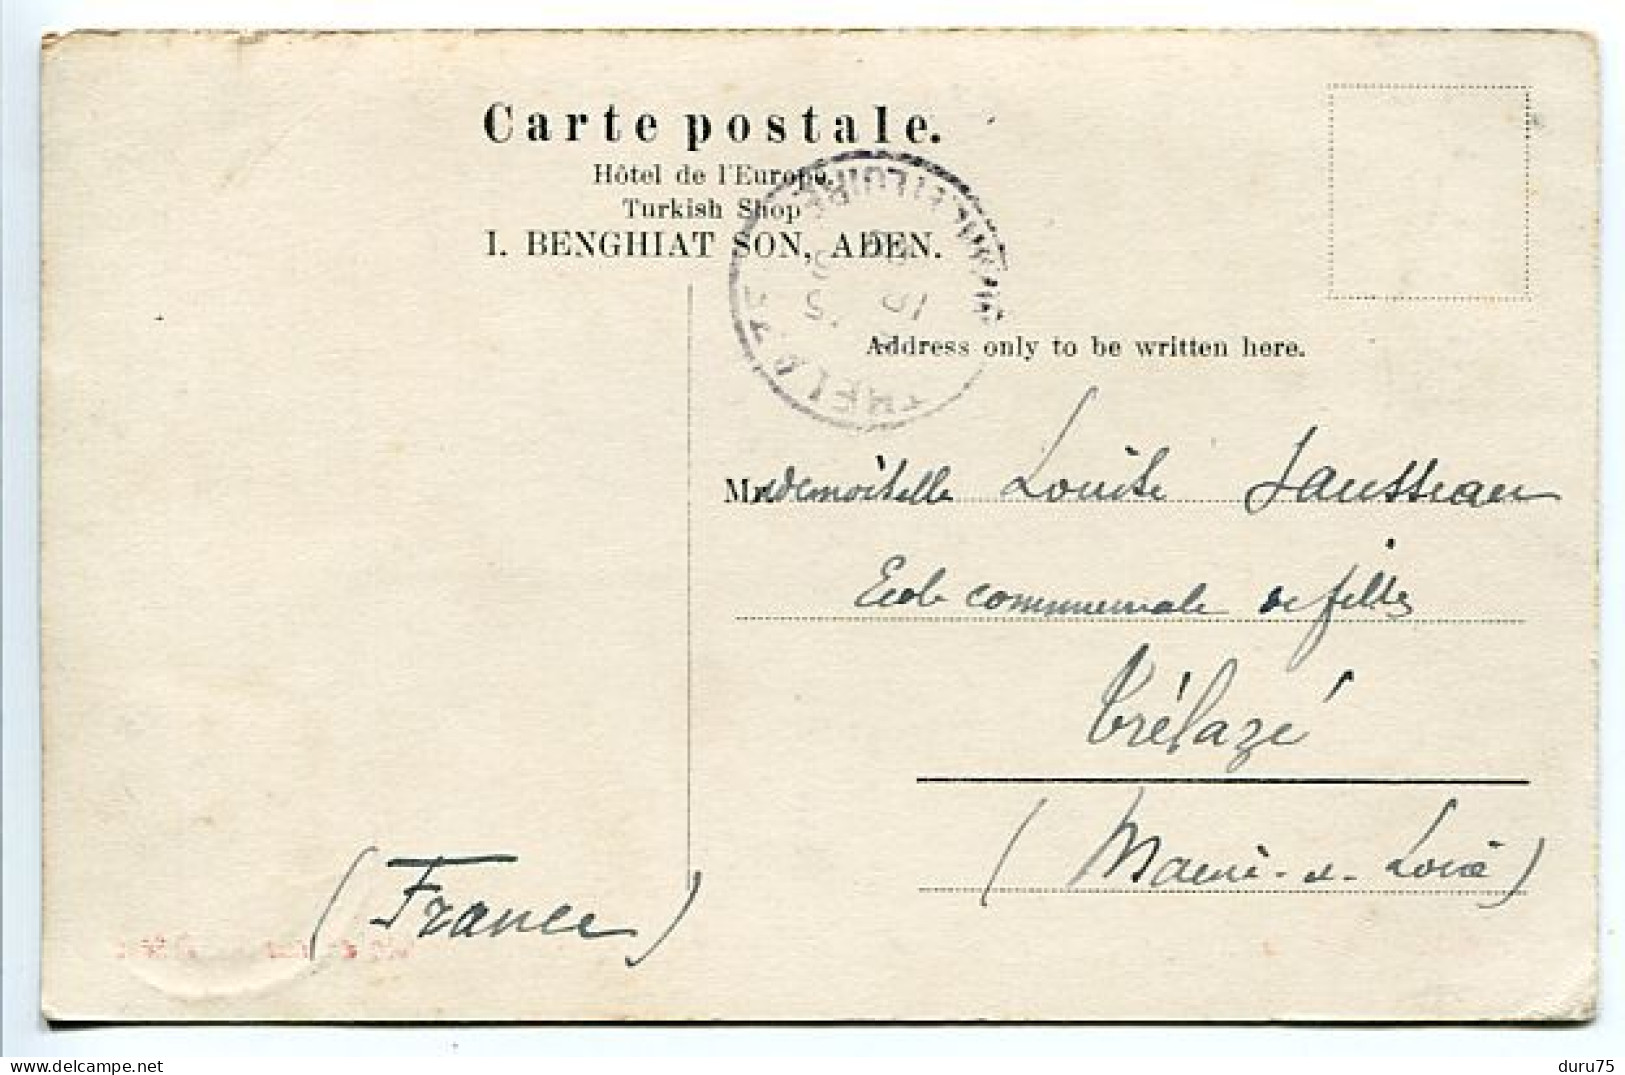 Carte postale.
Hôtel de l'Europe.
Turkish Shop
I. BENGHIAT SON, ADEN.
MAINE-ET-LOIRE
TRELAZE
Address only to be written here.
Mademoiselle Louise Jansseau
Ecole communale de filles
Trélazé
(Maine-et-Loire)
(France)
duru75